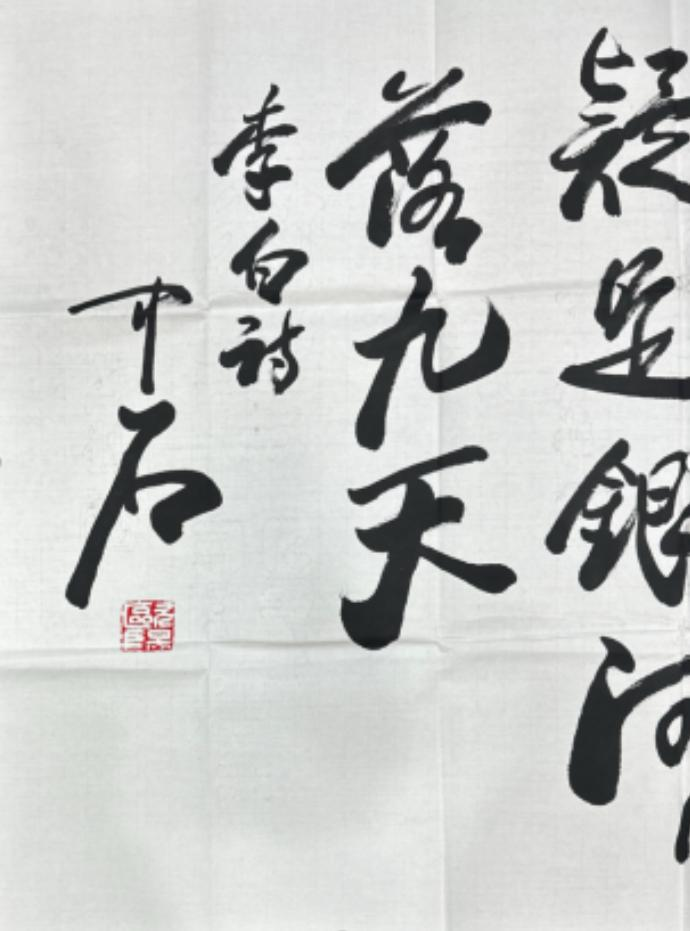 疑是银河
落九天
李白诗
中石